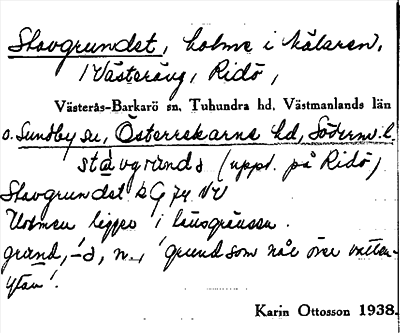 Stavgrundet, holme i Mälaren,
1 Västeråsg, Ridö,
Västerås-Barkarö sn, Tuhundra hd, Västmanlands län
o. Sundby sn, Österrekarne hd, Söderm. l.
stavgrundə (uppt. på Ridö)
Stavgrundet k G 74 NV
Holmen ligger i länsgränsen.
grund, -ə, n., 'grund som når över vatten-
ytan'.
Karin Ottosson 1938.